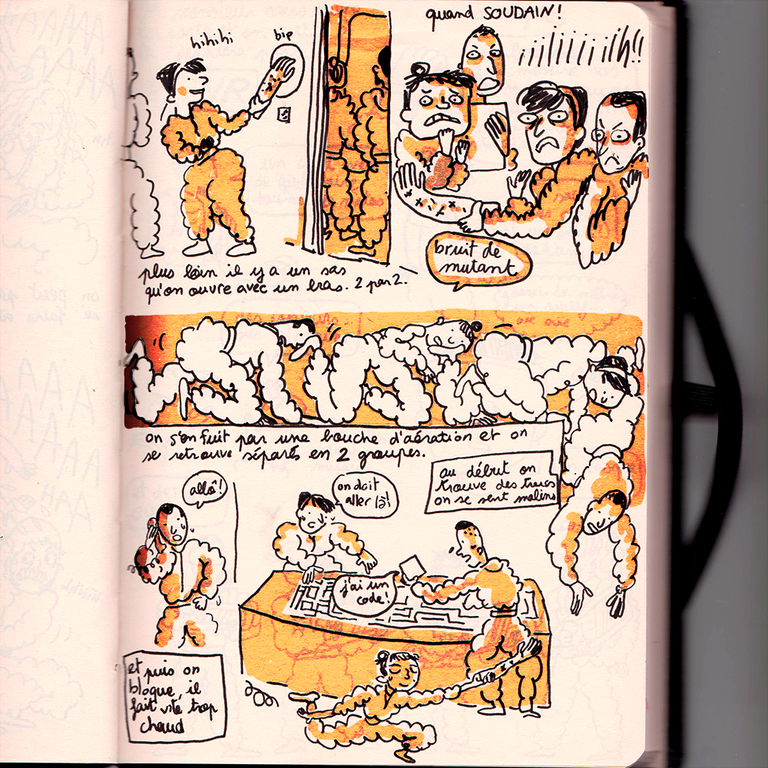 hihihi
bip
quand SOUDAIN!
iiliiiiiilh!!
bruit de
mutant
plus loin il y a un sas
qu'on ouvre avec un bras. 2 par 2.
on s'enfuit par une bouche d'aération et on
se retrouve séparés en 2 groupes.
au début on
trouve des trucs
on se sent malins
allô!
on doit
aller là!
j'ai un
code!
et puis on
bloque, il
fait vite trop
chaud